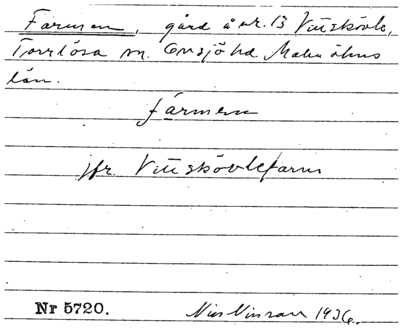 Farmen, gård å nr. 13 Vittskövle,
Torrlösa sn. Onsjö hd Malmöhus
län.
farmen
jfr. Vittskövlefarm
Nr 5720.
1936.